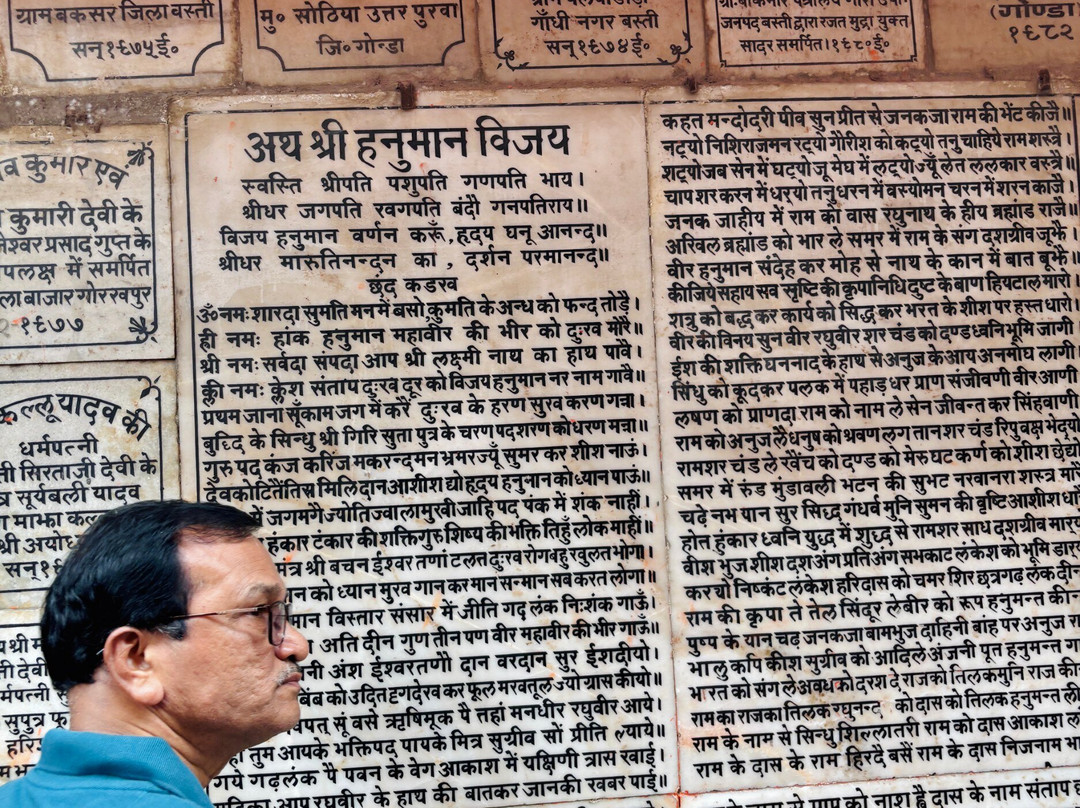 ग्राम बकसर जिला बस्ती
सन् १९७५ ई०
मु० सोठिया उत्तर पुरवा
जि० गोन्डा
गाँधी नगर बस्ती
सन् १९७४ ई०
जनपद बस्ती द्वारा रजत मुद्रा युक्त
सादर समर्पित। १९८० ई०
(गोण्डा)
१९८२
व कुमार एवं
कुमारी देवी के
जेश्वर प्रसाद गुप्त के
पलक्ष में समर्पित
ला बाजार गोरखपुर
१९७७
कल्लू यादव की
धर्मपत्नी
ती सिरताजी देवी के
त्र सूर्यबली यादव
माझा कल
श्री अयोध
अथ श्री हनुमान विजय
स्वस्ति श्रीपति पशुपति गणपति भाय।
श्रीधर जगपति खगपति बंदौ गनपतिराय॥
विजय हनुमान वर्णन करूँ, हृदय घनू आनन्द॥
श्रीधर मारुतिनन्दन का, दर्शन परमानन्द॥
छंद कडख
ॐ नमः शारदा सुमति मन में बसो कुमति के अन्ध को फन्द तोड़ै।
ह्री नमः हांक हनुमान महावीर की भीर को दुःख मोरै॥
श्री नमः सर्वदा संपदा आप श्री लक्ष्मी नाथ का हाथ पावै।
क्ली नमः क्लेश संताप दुःख दूर को विजय हनुमान नर नाम गावै॥
प्रथम जाना सूँ काम जग में करें दुःख के हरण सुख करण गन्ना।
बुद्धि के सिन्धु श्री गिरि सुता पुत्र के चरण पद शरण को धरण मन्ना॥
गुरु पद कंज करिंज मकरन्द मन भ्रमर ज्यूँ सुमर कर शीश नाऊं।
देव कोटि तैंतिस मिलि दान आशीश द्यो हृदय हनुमान को ध्यान पाऊं॥
जगमगै ज्योति ज्वालामुखी जाहि पद पंक में शंक नाहीं।
हंकार टंकार की शक्ति गुरु शिष्य की भक्ति तिहुँ लोक माहीं॥
श्री बचन ईश्वर तणां टलत दुःख रोग बहु खुलत भोगा।
को ध्यान मुख गान कर मान सन्मान सब करत लोगा॥
मान विस्तार संसार में जीति गढ़ लंक निःशंक गाऊँ।
अति दीन गुण तीन पण वीर महावीर की भीर गाऊँ॥
अंश ईश्वर तणौ दान वरदान सुर ईश दीयो।
बिंब को उदित दृग देख कर फूल मखतूल ज्यो ग्रास कीयो॥
सूं वसे ऋषिमूक पै तहां मनधीर रघुवीर आये।
तुम आयके भक्ति पद पायके मित्र सुग्रीव सों प्रीति ल्याये॥
गये गढ़लंक पै पवन के वेग आकाश में यक्षिणी त्रास खाई।
आप रघुवीर के हाथ की बातकर जानकी खबर पाई॥
कहत मन्दोदरी पीव सुन प्रीत से जनकजा राम की भेंट कीजै॥
नट्यो निशिराज मन रट्यो गौरीश को कट्यो तनु चाहिये राम शस्त्रै।
शट्यो जब सेन में घट्यो जू मेघ में लट्यो ज्यूँ लेत ललकार वस्त्रै॥
चाप शर करन में धर्‌यो तनु धरन में वस्यो मन चरन में शरन काजै।
जनक जाहीय में राम को वास रघुनाथ के हीय ब्रह्मांड राजै॥
अखिल ब्रह्मांड को भार ले समर में राम के संग दशग्रीव जूझै।
वीर हनुमान संदेह कर मोह से नाथ के कान में बात बूझै॥
कीजिये सहाय सव सृष्टि की कृपानिधि दुष्ट के बाण हिय टाल मारो।
शत्रु को बद्ध कर कार्य को सिद्ध कर भरत के शीश पर हस्त धारो।
वीर की विनय सुन वीर रघुवीर शर चंड को दण्ड ध्वनि भूमि जागी
ईश की शक्ति घननाद के हाथ से अनुज के आय अनमोघ लागी
सिंधु को कूदकर पलक में पहाड़ धर प्राण संजीवणी वीर आणी
लषण को प्राणदा राम को नाम ले सेन जीवन्त कर सिंहवाणी
राम को अनुज लै धनुष को श्रवण लग तान शर चंड रिपु वक्ष भेदयो
रामशर चंड ले खैंच को दण्ड को मेरु घट कर्ण को शीश छेद्यो
समर में रुंड मुंडावली भटन की सुभट नर वानरा शस्त्र मारै
चढ़े नभ यान सुर सिद्ध गंधर्व मुनि सुमन की वृष्टि आशीश धारै
होत हुंकार ध्वनि युद्ध में शुद्ध से रामशर साध दशग्रीव मार्‌यो
वीश भुज शीश दश अंग प्रति अंग सभ काट लंकेश को भूमि डार
कर यो निष्कंट लंकेश हरिदास को चमर शिर छत्र गढ़ लंक दीन
राम की कृपा ने तेल सिंदूर ले वीर को रूप हनुमन्त कीन
पुष्प के यान चढ़ जनकजा बामभुज दाहिनी बांह पर अनुज रा
भालु कपि कीश सुग्रीव को आदिले अंजनी पूत हनुमन्त गा
भारत को संग ले अवध को दरश दे राज को तिलक मुनि राज की
राम का राजका तिलक रघुनन्द को दास को तिलक हनुमन्त ली
राम के नाम से सिन्धु शिल्ला तरी राम को दास आकाश ल
राम के दास के राम हिरदै बसैं राम के दास निज नाम भा